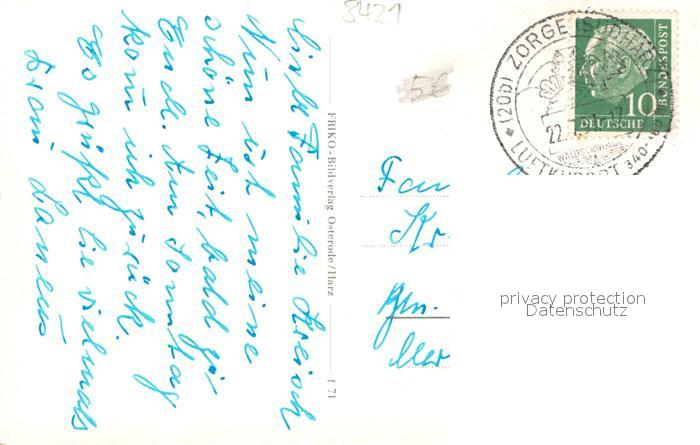 3421
56
Liebe Familie Kreisch
Nun ist meine
schöne Zeit, bald zu
Ende. Am Sonntag
komm ich zurück.
Es grüßt Sie vielmals
Frau
FRIKO-Bildverlag Osterode/Harz
f 71
(20b) ZORGE (SÜDHARZ)
22.7
WALDSCHWIMMBAD
LUFTKURORT 340-
10
DEUTSCHE
BUNDESPOST
Fam
Kr
Bln.
privacy protection
Datenschutz